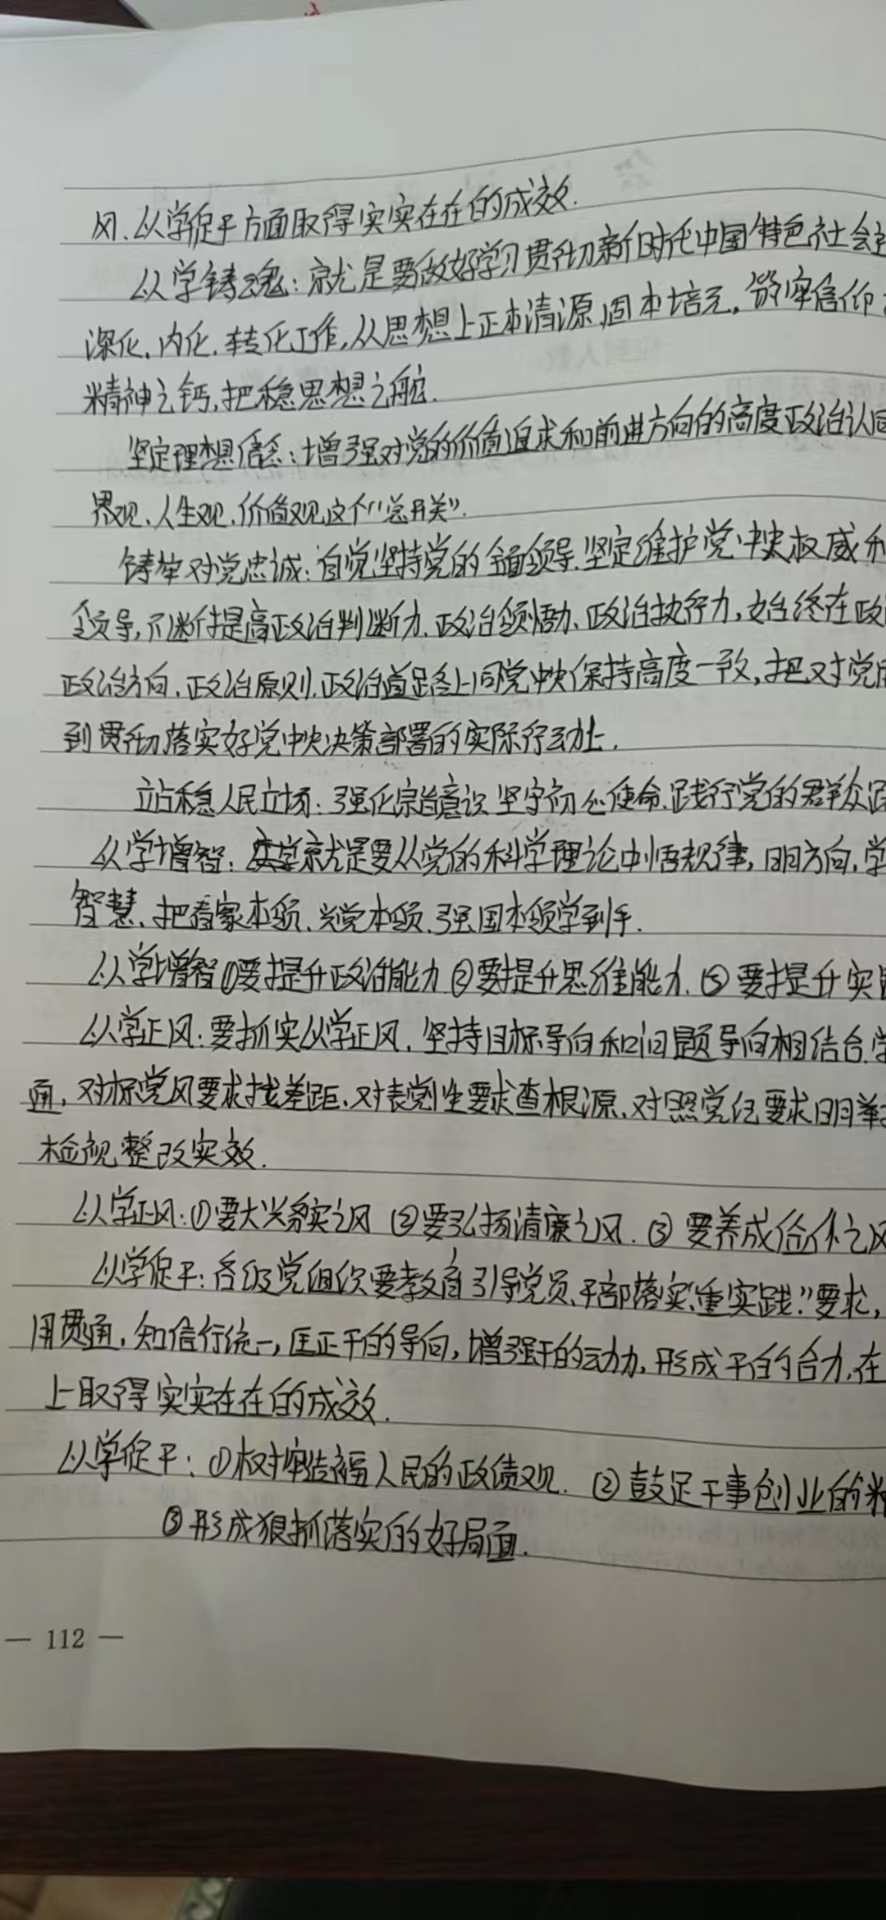 风、以学促干方面取得实实在在的成效.
以学铸魂：就是要做好学习贯彻新时代中国特色社会主
深化、内化、转化工作，从思想上正本清源、固本培元，筑牢信仰之
精神之钙，把稳思想之舵.
坚定理想信念：增强对党的价值追求和前进方向的高度政治认同
界观、人生观、价值观这个“总开关”.
铸牢对党忠诚：自觉坚持党的全面领导、坚定维护党中央权威和
领导，不断提高政治判断力、政治领悟力、政治执行力，始终在政
政治方向、政治原则、政治道路上同党中央保持高度一致，把对党
到贯彻落实好党中央决策部署的实际行动上.
站稳人民立场：强化宗旨意识 坚守初心使命，践行党的群众路
以学增智：就是要从党的科学理论中悟规律，明方向，学
智慧，把看家本领、兴党本领、强国本领学到手.
以学增智①要提升政治能力②要提升思维能力.③要提升实
以学正风：要抓实以学正风，坚持目标导向和问题导向相结合 学
通，对标党风要求找差距、对表党性要求查根源、对照党纪要求明举
检视整改实效.
以学正风：①要大兴务实之风 ②要弘扬清廉之风.③要养成俭朴之风
以学促干：各级党组织要教育引导党员、干部落实“重实践”要求，
用贯通，知信行统一，匡正干的导向，增强干的动力，形成干的合力，在
上取得实实在在的成效.
以学促干：①树牢造福人民的政绩观. ②鼓足干事创业的精
③形成狠抓落实的好局面.
— 112 —